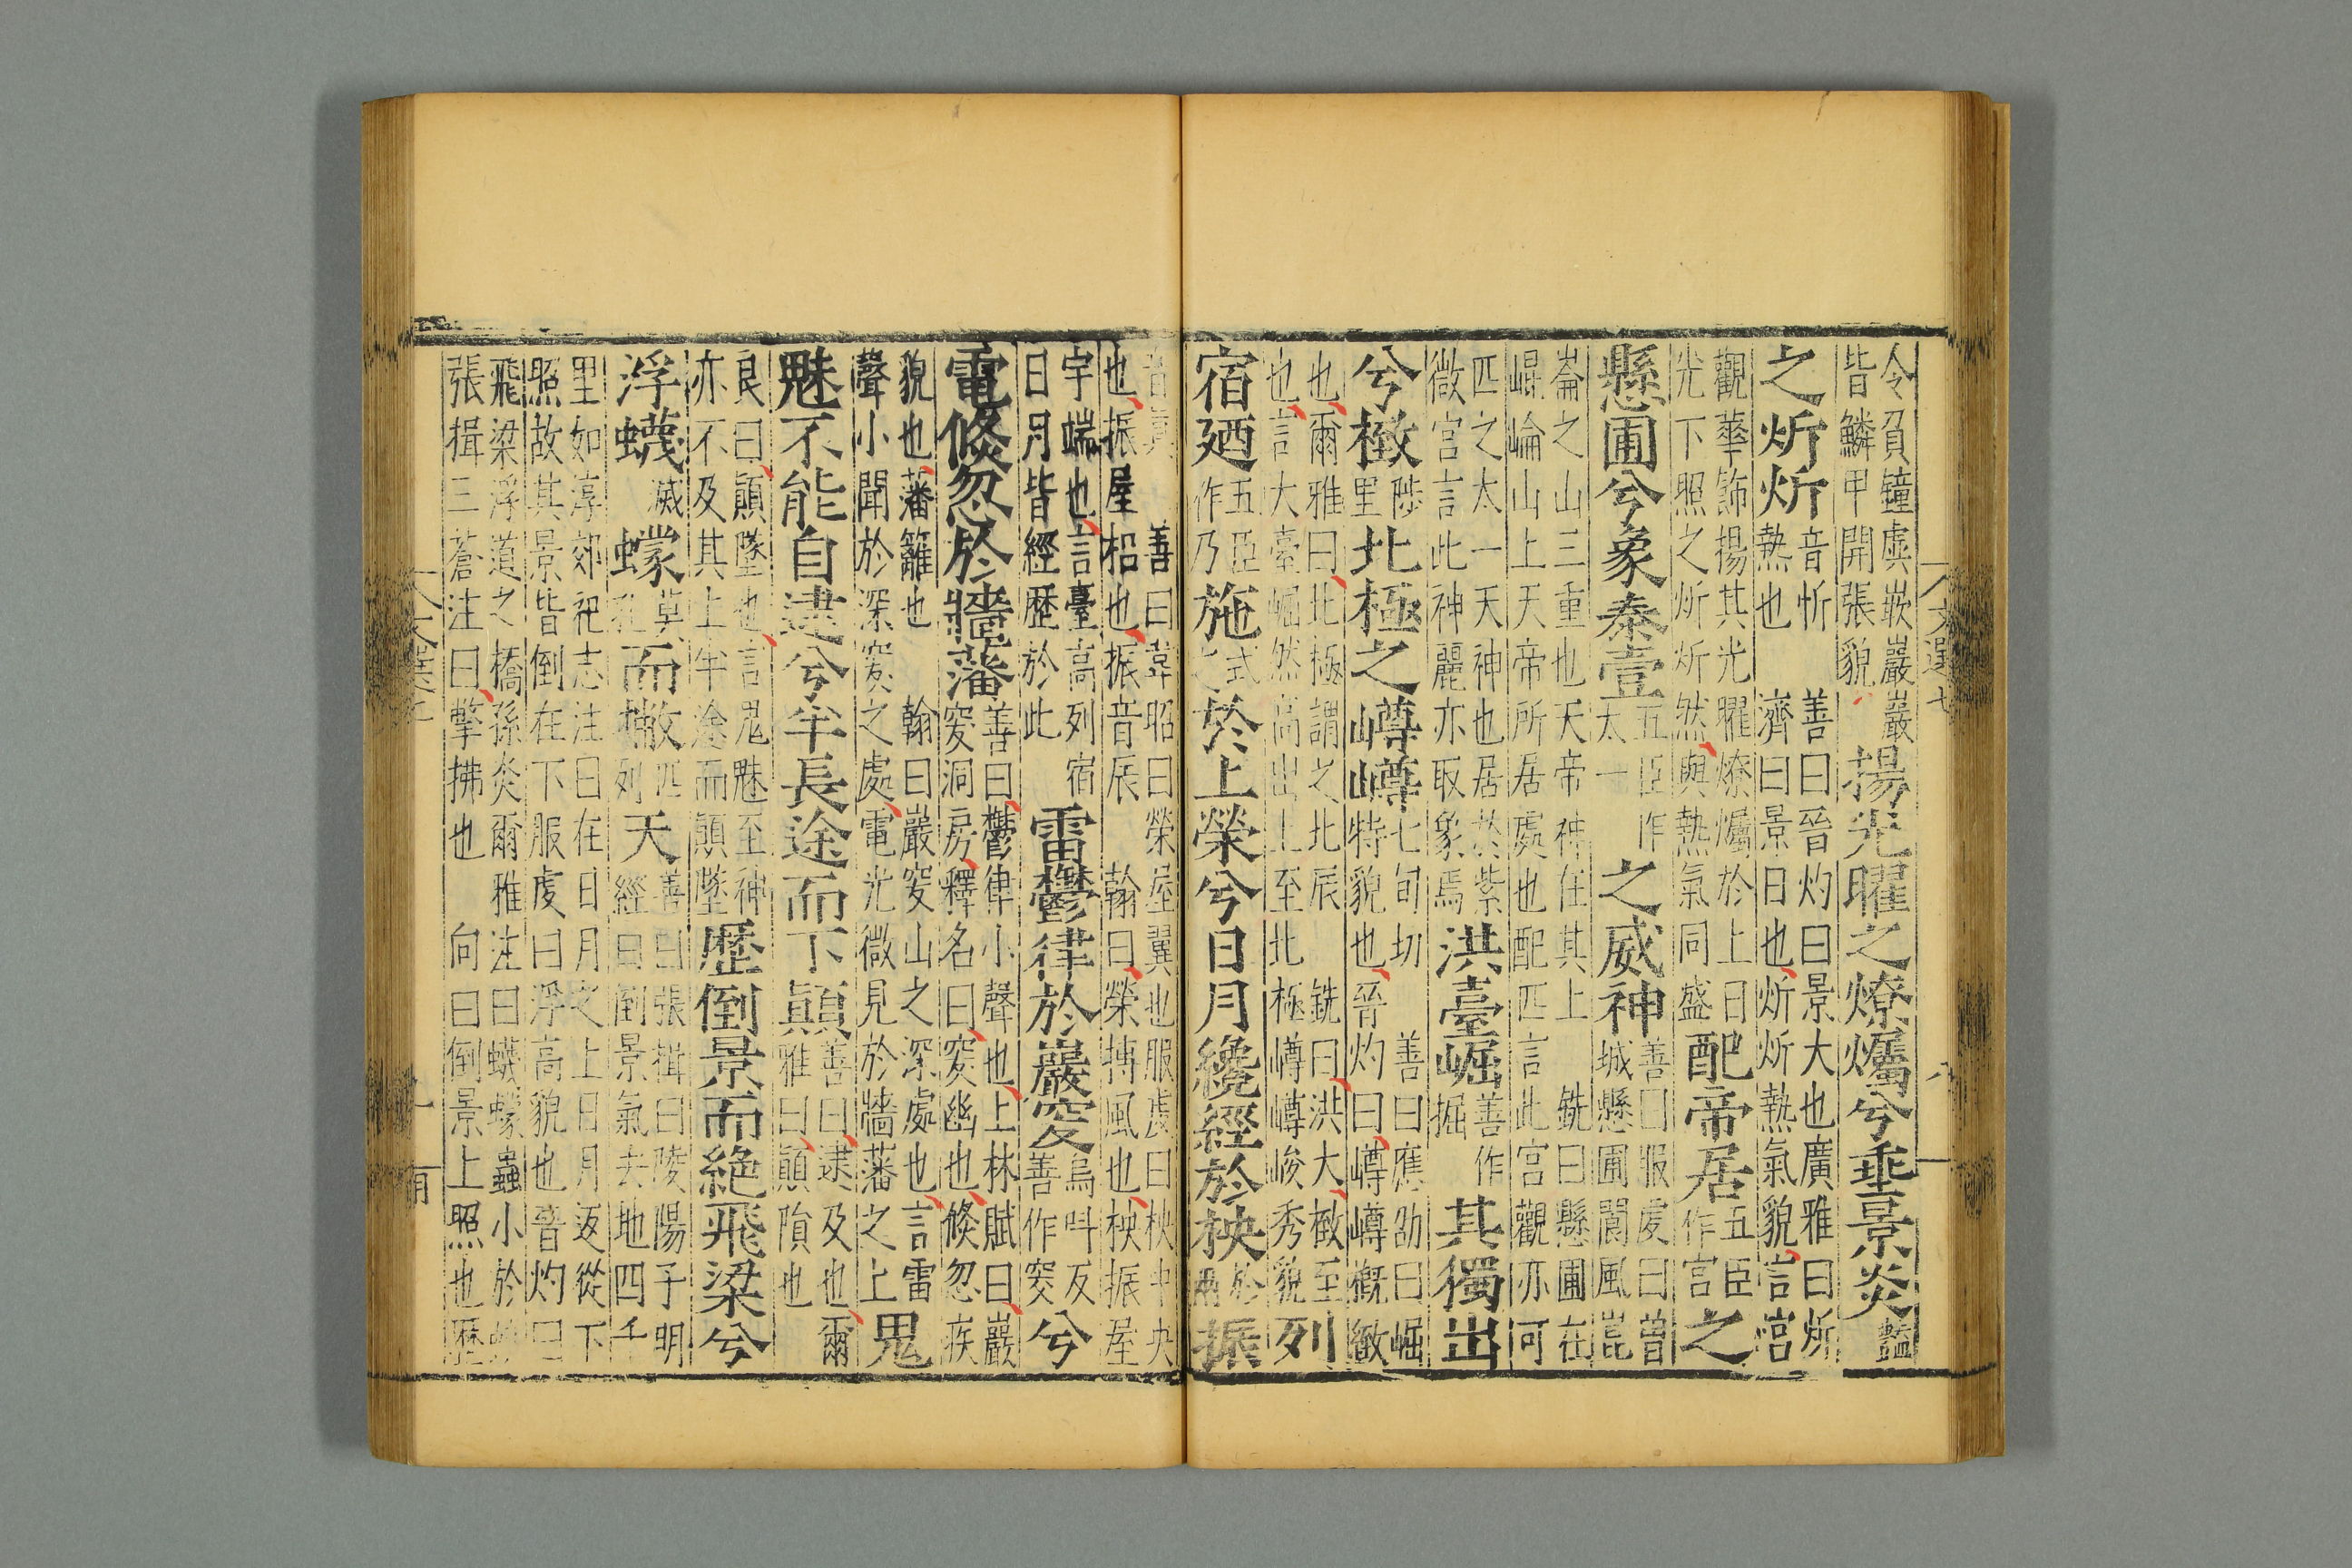 令負鐘虡嵌巖巖
皆鱗甲開張貌
揚光曜之燎爥兮垂景炎
豔
之炘炘
音忻 善曰晉灼曰景大也廣雅曰炘
熱也 濟曰景日也炘炘熱氣貌言宮
觀華飾揚其光曜燎爥於上日
光下照之炘炘然與熱氣同盛
配帝居
五臣
作宮
之
懸圃兮象泰壹
五臣作
太一
之威神
善曰服虔曰曾
城懸圃閬風崑
崙之山三重也天帝神在其上 銑曰懸圃在
崐崘山上天帝所居處也配匹言此宮觀亦可
匹之太一天神也居於紫
微宮言此神麗亦取象焉
洪臺崛
善作
掘
其獨出
兮㨖
陟
里
北極之嶟嶟
七旬切 善曰應劭曰崛
特貌也晉灼曰嶟嶟概緻
也爾雅曰北極謂之北辰 銑曰洪大㨖至
也言大臺崛然高出上至北極嶟嶟峻秀貌
列
宿廼
五臣
作乃
施
式
支
於上榮兮日月纔經於柍
於
兩
桭
善曰韋昭曰榮屋翼也服虔曰柍中央
也桭屋梠也桭音辰 翰曰榮搏風也柍桭屋
宇端也言臺高列宿
日月皆經歷於此
雷鬱律於巖窔
烏叫反
善作突
兮
電倐忽於牆藩
善曰鬱律小聲也上林賦曰巖
窔洞房釋名曰窔幽也倐忽疾
貌也藩籬也 翰曰巖窔山之深處也言雷
聲小聞於深窔之處電光微見於牆藩之上
鬼
魅不能自逮兮半長途而下顛
善曰逮及也爾
雅曰顛隕也
良曰顛墜也言鬼魅至神
亦不及其上半途而顛墜
歷倒景而絕飛梁兮
浮蠛
滅
蠓
莫
孔
而撇
匹
列
天
善曰張揖曰陵陽子明
經曰倒景氣去地四千
里如淳郊祀志注曰在日月之上日月返從下
照故其景皆倒在下服虔曰浮高貌也晉灼曰
飛梁浮道之橋孫炎爾雅注曰蠛蠓蟲小於蚊
張揖三蒼注曰撆拂也 向曰倒景上照也歷